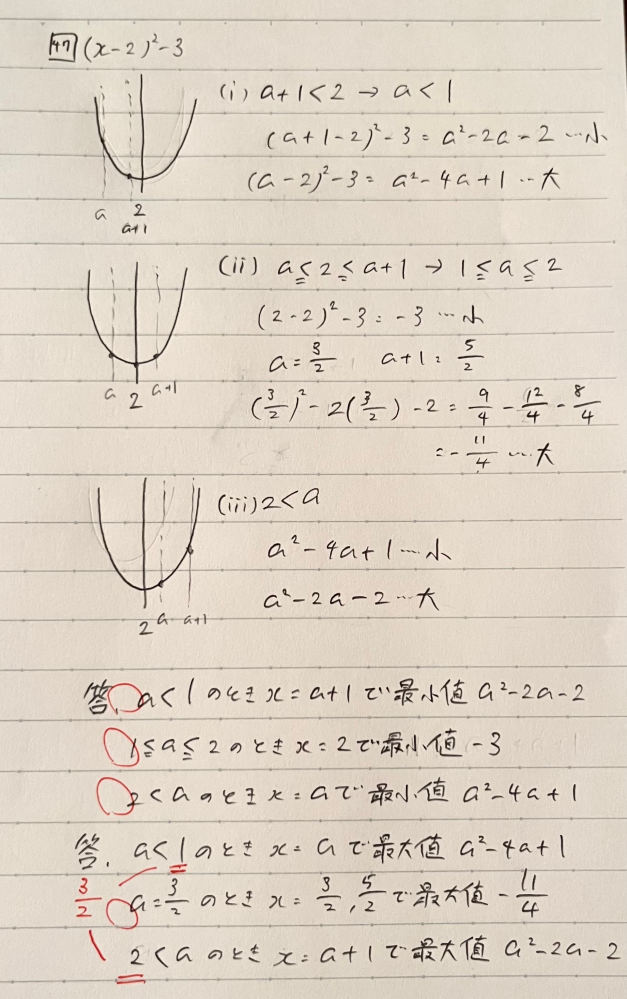 47 (x-2)²-3
(i) a+1<2 → a<1
(a+1-2)²-3=a²-2a-2 …小
(a-2)²-3= a²-4a+1 …大
a 2
a+1
(ii) a≦2≦a+1 → 1≦a≦2
(2-2)²-3=-3 …小
a=3/2 a+1=5/2
a 2 a+1
(3/2)²-2(3/2)-2=9/4-12/4-8/4
=-11/4 …大
(iii) 2<a
a²-4a+1 …小
a²-2a-2 …大
2 a a+1
答. a<1のときx=a+1で最小値 a²-2a-2
1≦a≦2のときx=2で最小値-3
2<aのときx=aで最小値 a²-4a+1
答. a<1のときx=aで最大値 a²-4a+1
3/2 a=3/2のときx=3/2,5/2で最大値-11/4
2<aのときx=a+1で最大値 a²-2a-2